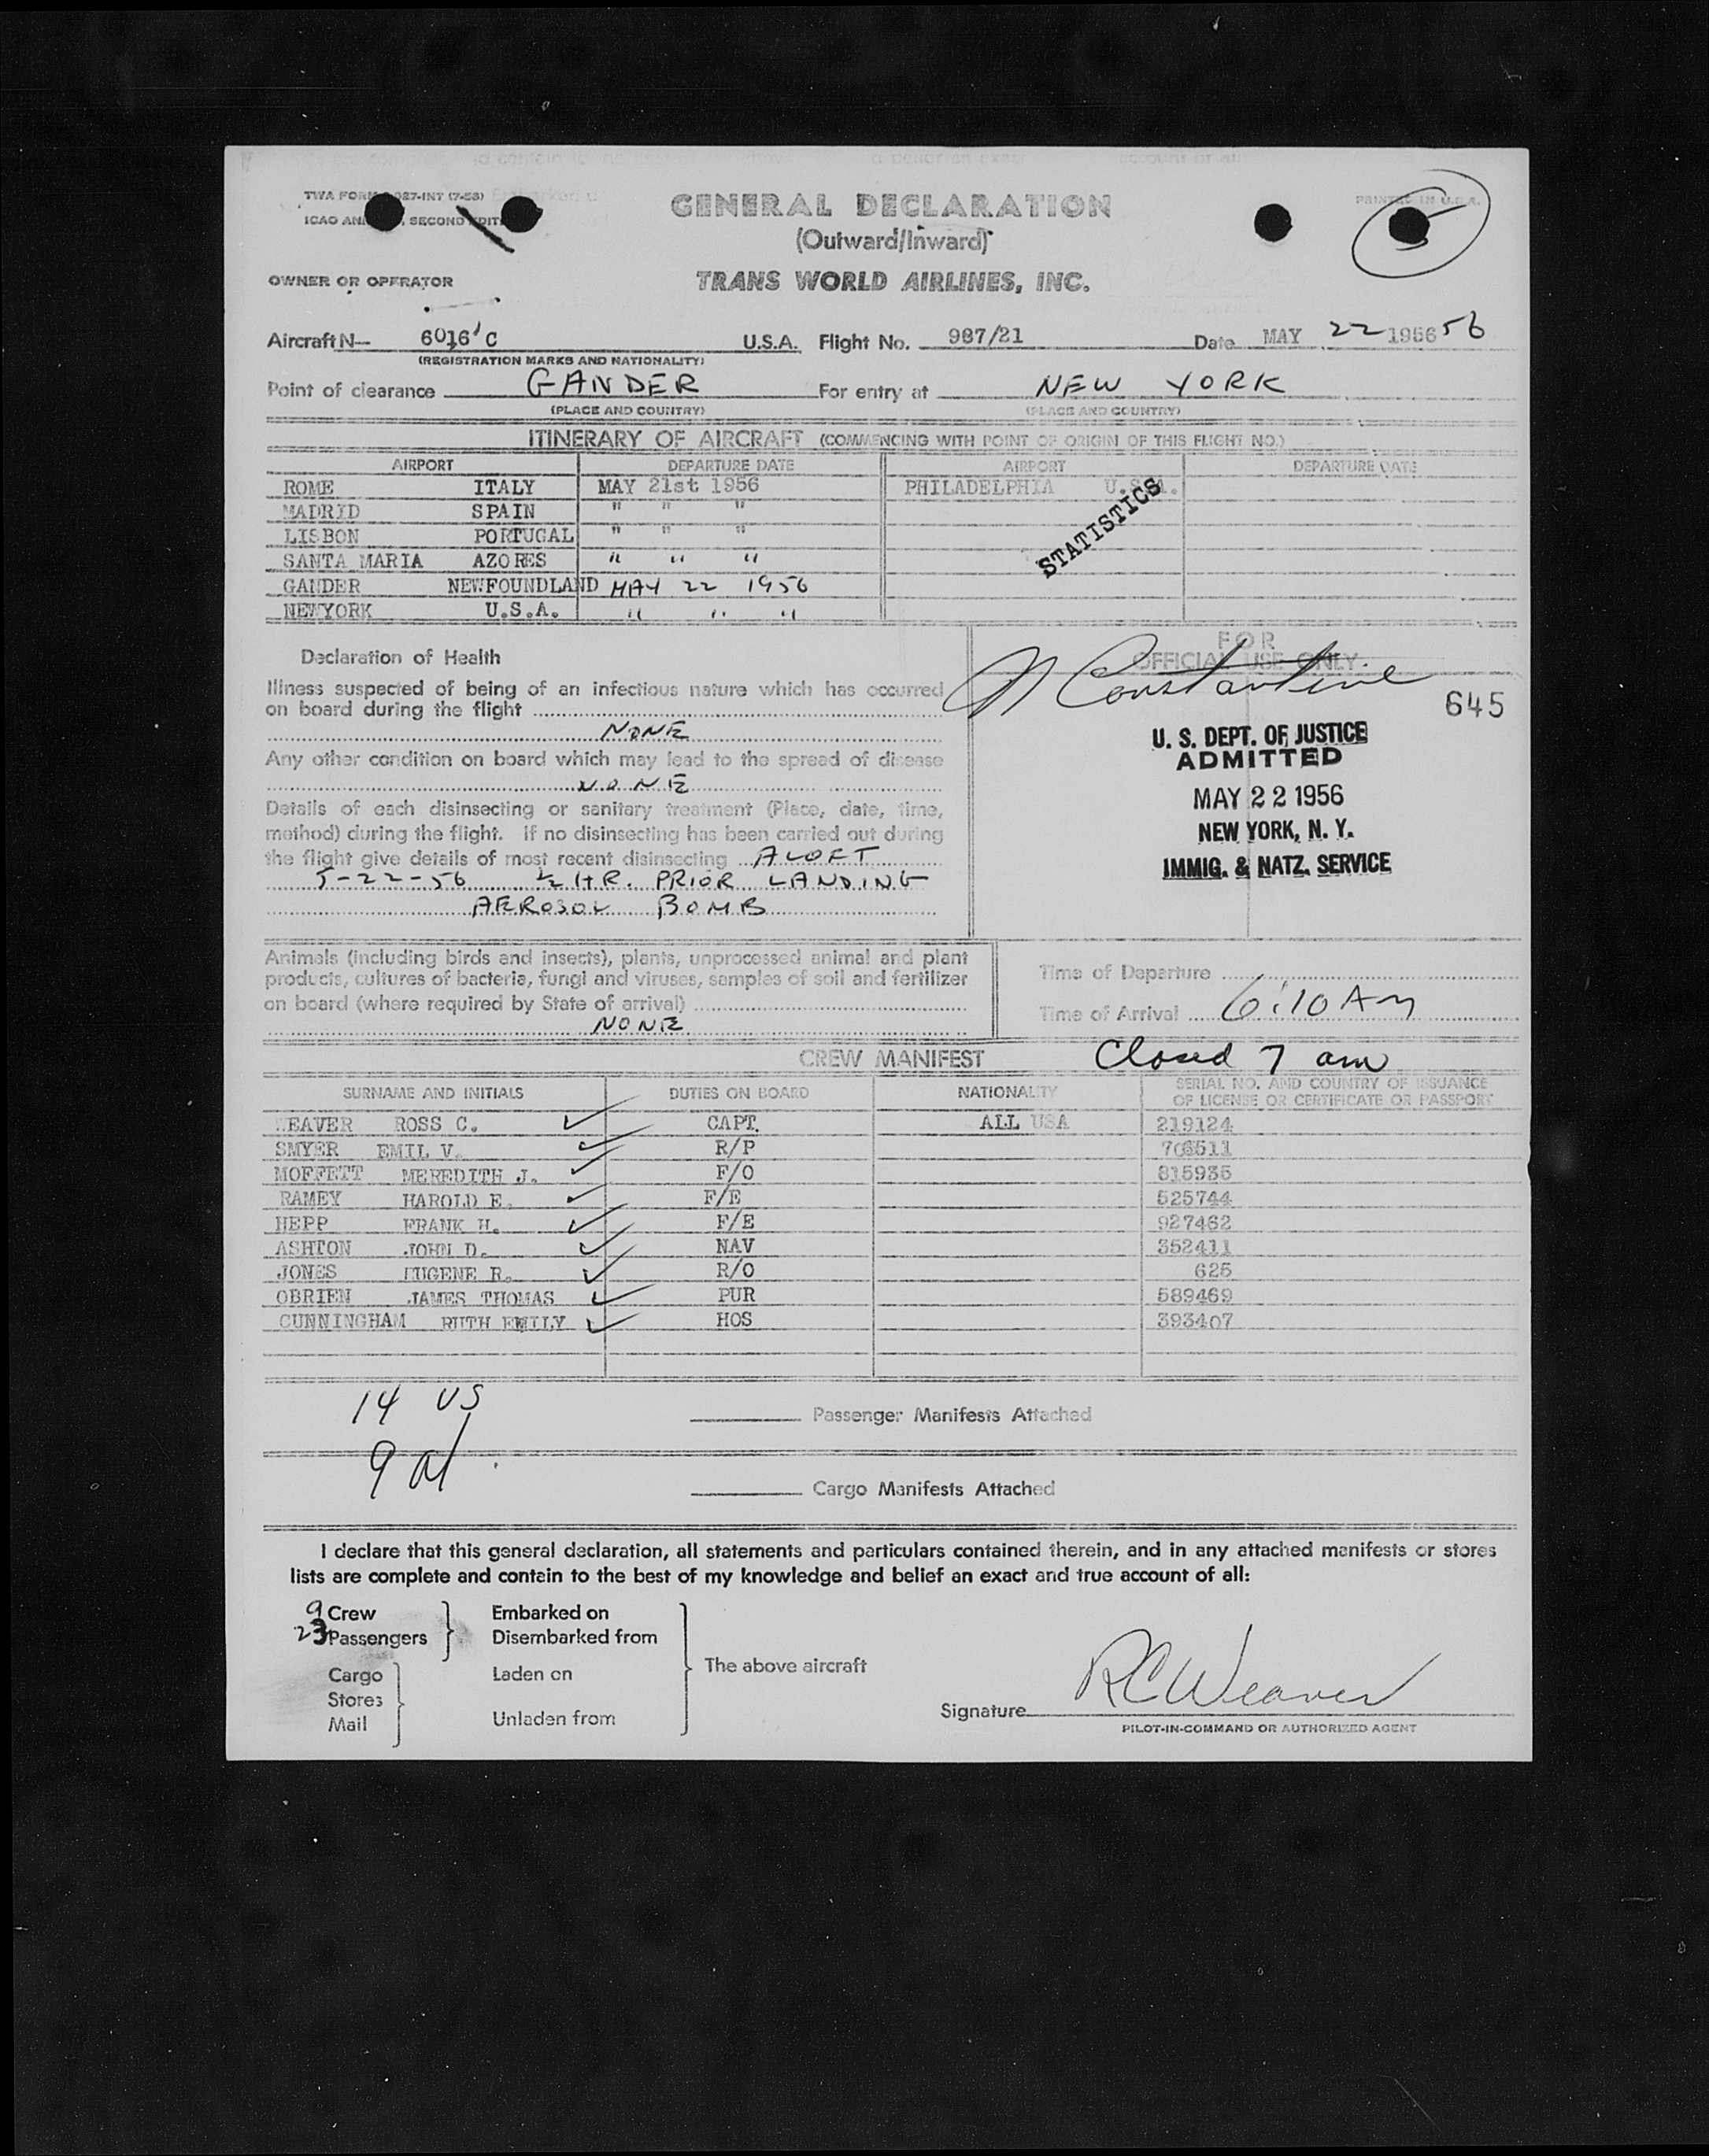 TWA FORM 027-INT (7-53)
ICAO SECOND
PRINTED IN U.S.A.
GENERAL DECLARATION
(Outward/Inward)
OWNER OR OPERATOR TRANS WORLD AIRLINES, INC.
Aircraft N— 6016 C U.S.A. Flight No. 987/21 Date MAY 22 1956 56
(REGISTRATION MARKS AND NATIONALITY)
Point of clearance GANDER For entry at NEW YORK
(PLACE AND COUNTRY) (PLACE AND COUNTRY)
ITINERARY OF AIRCRAFT (COMMENCING WITH POINT OF ORIGIN OF THIS FLIGHT NO.)
AIRPORT DEPARTURE DATE AIRPORT DEPARTURE DATE
ROME ITALY MAY 21st 1956 PHILADELPHIA U.S.A.
MADRID SPAIN " " "
LISBON PORTUGAL " " "
SANTA MARIA AZORES " " "
GANDER NEWFOUNDLAND MAY 22 1956
NEWYORK U.S.A. " " "
STATISTICS
Declaration of Health
Illness suspected of being of an infectious nature which has occurred
on board during the flight
NONE
Any other condition on board which may lead to the spread of disease
NONE
Details of each disinsecting or sanitary treatment (Place, date, time,
method) during the flight. If no disinsecting has been carried out during
the flight give details of most recent disinsecting ALOFT
5-22-56 ½ HR. PRIOR LANDING
AEROSOL BOMB
FOR
OFFICIAL USE ONLY
Constantine
645
U. S. DEPT. OF JUSTICE
ADMITTED
MAY 22 1956
NEW YORK, N. Y.
IMMIG. & NATZ. SERVICE
Animals (including birds and insects), plants, unprocessed animal and plant
products, cultures of bacteria, fungi and viruses, samples of soil and fertilizer
on board (where required by State of arrival)
NONE
Time of Departure
Time of Arrival 6:10 AM
CREW MANIFEST Closed 7 am
SURNAME AND INITIALS DUTIES ON BOARD NATIONALITY SERIAL NO. AND COUNTRY OF ISSUANCE
OF LICENSE OR CERTIFICATE OR PASSPORT
WEAVER ROSS C. CAPT. ALL USA 219124
SMYER EMIL V. R/P 706511
MOFFETT MEREDITH J. F/O 815935
RAMEY HAROLD E. F/E 525744
HEPP FRANK H. F/E 927462
ASHTON JOHN D. NAV 352411
JONES EUGENE R. R/O 625
OBRIEN JAMES THOMAS PUR 589469
CUNNINGHAM RUTH EMILY HOS 393407
14 US
Passenger Manifests Attached
9 al
Cargo Manifests Attached
I declare that this general declaration, all statements and particulars contained therein, and in any attached manifests or stores
lists are complete and contain to the best of my knowledge and belief an exact and true account of all:
9 Crew Embarked on
23 Passengers Disembarked from
Cargo Laden on The above aircraft
Stores
Mail Unladen from
Signature RC Weaver
PILOT-IN-COMMAND OR AUTHORIZED AGENT